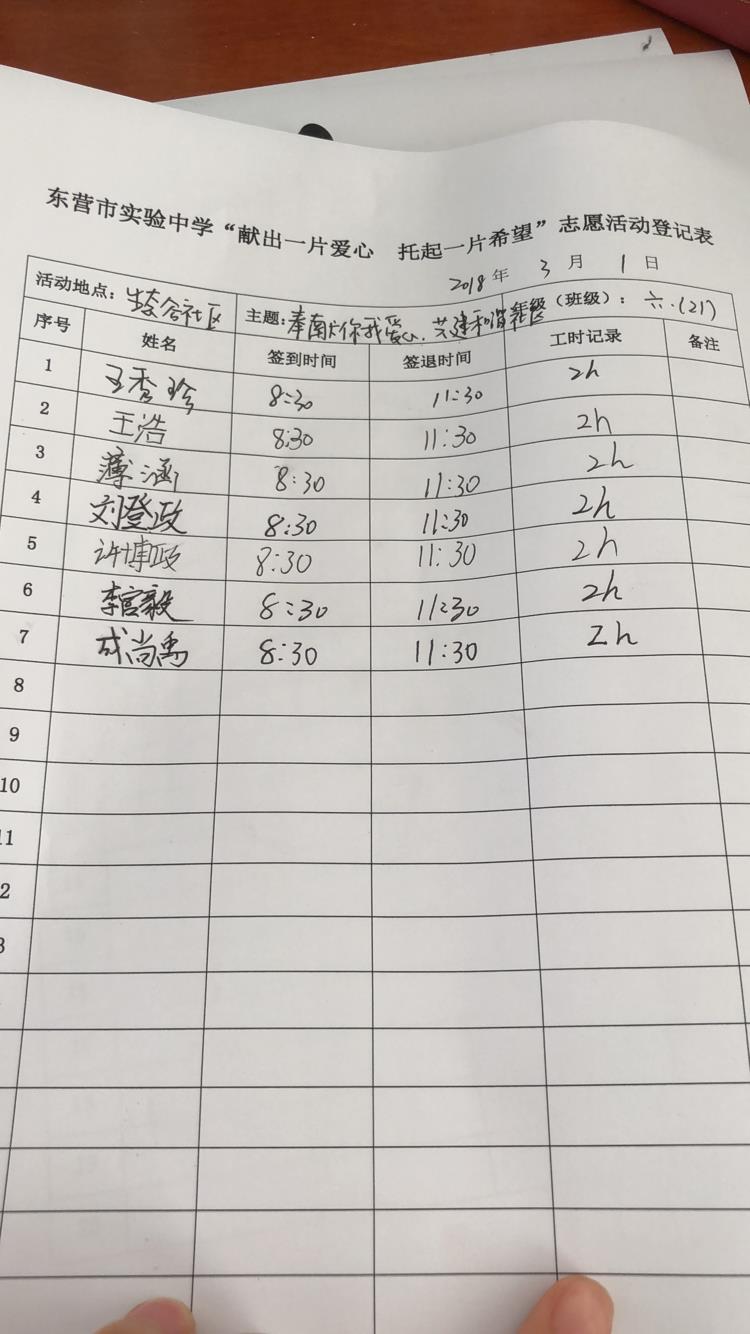 东营市实验中学“献出一片爱心 托起一片希望”志愿活动登记表
2018年 3月 1日
活动地点： 社区 主题：奉献你我爱心.共建和谐社区 年级（班级）：六.(21)
序号 姓名 签到时间 签退时间 工时记录 备注
1 王秀珍 8:30 11:30 2h
2 王浩 8:30 11:30 2h
3 薄涵 8:30 11:30 2h
4 刘登政 8:30 11:30 2h
5 许博政 8:30 11:30 2h
6 李宫毅 8:30 11:30 2h
7 成尚禹 8:30 11:30 2h
8
9
10
11
2
3